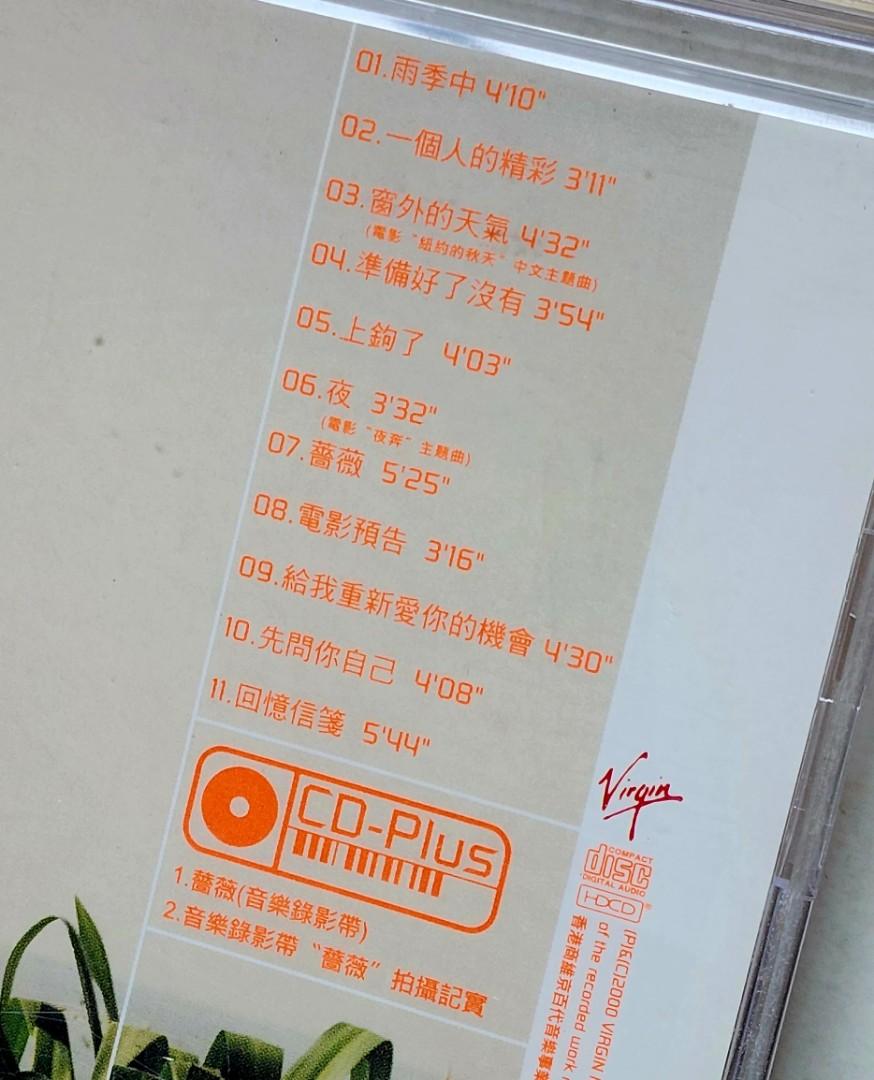 01.雨季中 4'10"
02.一個人的精彩 3'11"
03.窗外的天氣 4'32"
(電影〝紐約的秋天〞中文主題曲)
04.準備好了沒有 3'54"
05.上鉤了 4'03"
06.夜 3'32"
(電影〝夜奔〞主題曲)
07.薔薇 5'25"
08.電影預告 3'16"
09.給我重新愛你的機會 4'30"
10.先問你自己 4'08"
11.回憶信箋 5'44"
CD-Plus
1.薔薇(音樂錄影帶)
2.音樂錄影帶〝薔薇〞拍攝記實
Virgin
COMPACT
disc
DIGITAL AUDIO
HDCD®
(P)&(C)2000 VIRGIN
of the recorded work
香港商維京百代音樂事業